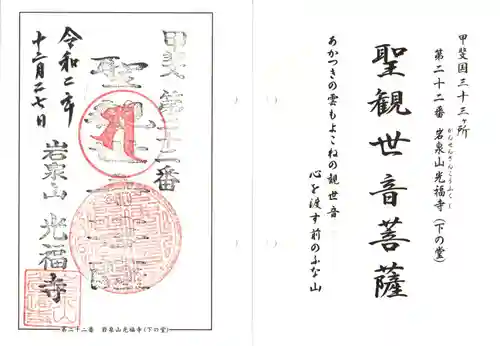 甲斐国三十三ヶ所
第二十二番 岩泉山光福寺(下の堂)
がんせんざんこうふくじ
聖観世音菩薩
あかつきの雲もよこねの観世音
心を渡す前のふな山
甲斐 第二十二番
聖観世音
岩泉山 光福寺
令和二年
十二月二七日
第二十二番 岩泉山光福寺(下の堂)